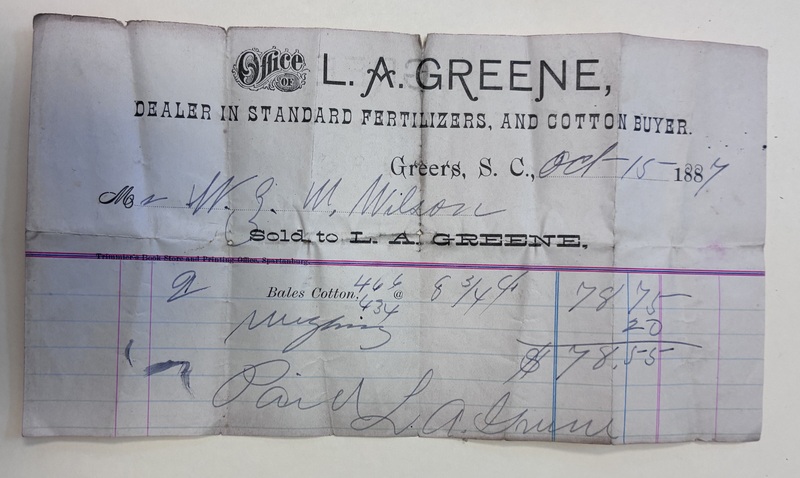 Office OF L. A. GREENE,
DEALER IN STANDARD FERTILIZERS, AND COTTON BUYER.
Greers, S. C., Oct 15 1887
Mr W. G. W. Wilson
Sold to L. A. GREENE,
Trimmier's Book Store and Printing Office, Spartanburg.
2 Bales Cotton. 466 @ 8 3/4 ¢ 78 75
434
Weighing 20
$ 78.55
Paid L. A. Greene